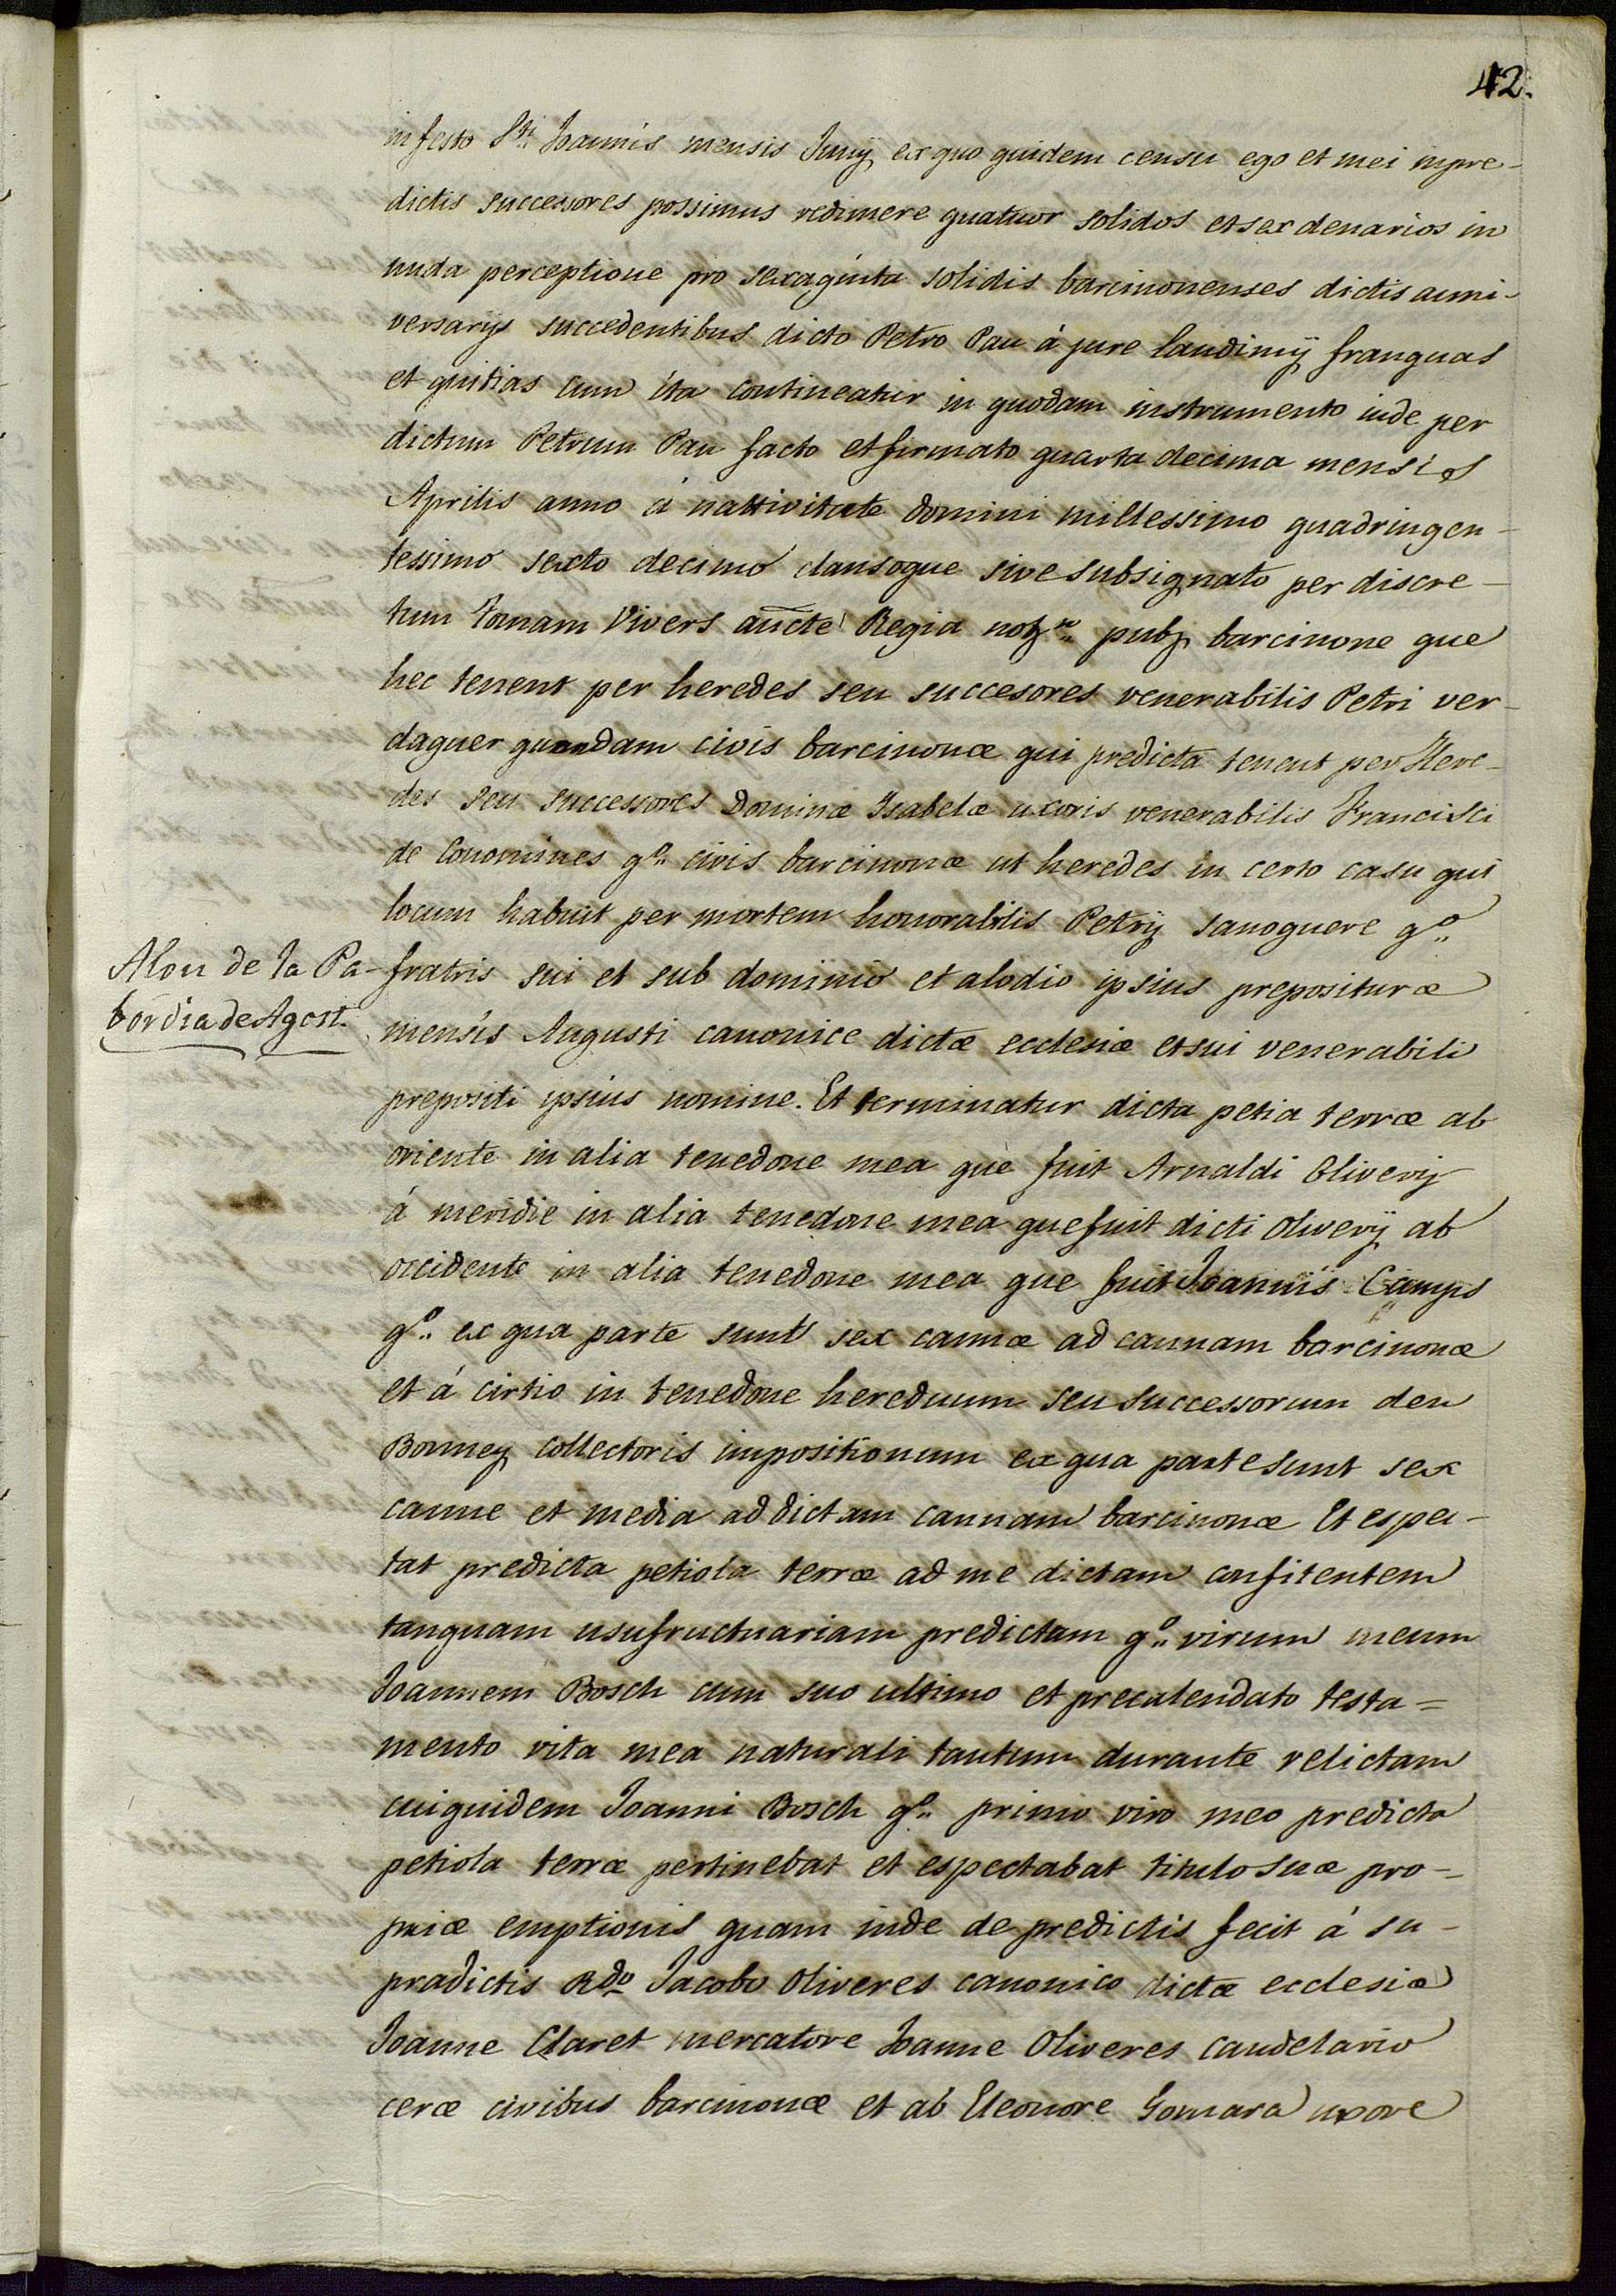 42.
in festo Sti. Joannis mensis Junÿ, ex quo quidem censu ego et mei inpre-
dictis successores possimus redimere quatuor solidos et sex denarios in
nuda perceptione pro sexaginta solidis barcinonenses dictis anni-
versarÿs succedentibus dicto Petro Pau á jure laudimÿ franquas
et quitias cum ita contineatur in quodam instrumento inde per
dictum Petrum Pau facto et firmato quarta decima mensis
Aprilis anno á nattivitate domini millessimo quadringen-
tessimo sexto decimo clausoque sive subsignato per discre-
tum Joanam Vivers aucte Regia not. pub. barcinone que
hec tenent per heredes seu succesores venerabilis Petri ver-
daguer quandam civis barcinonæ qui predicta tenent per Here-
des seu successores Dominæ Isabelæ uxoris venerabilis Francisci
de Conomines qo. civis barcinonæ ut heredes in certo casu qui
locum habuit per mortem honorabilis Petrÿ sanoguere qo.
Alou de la Pa-
bordia de Agost.
fratris sui et sub dominio et alodio ipsius prepositura
mensis Augusti canonice dictæ ecclesiæ et sui venerabili
prepositi ipsius nomine. Et terminatur dicta petia terræ ab
oriente in alia tenedone mea que fuit Arnaldi Oliverÿ
á meridie in alia tenedone mea que fuit dicti Oliverÿ ab
occidente in alia tenedone mea que fuit Joannis Camps
qo. ex qua parte sunt sex cannæ ad cannam barcinonæ
et á cirtio in tenedone hereduum seu successorum den
Bonney collectoris impositionum ex qua parte sunt sex
canne et media ad dictam cannam barcinonæ Et espec-
tat predicta petiola terræ ad me dictam confitentem
tanquam usufructuariam predictam qo. virum meum
Joannem Bosch cum suo ultimo et precalendato testa=
mento vita mea naturali tantum durante relictam
cuiquidem Joanni Bosch qo. primo viro meo predicta
petiola terræ pertinebat et espectabat titulo suæ pro-
priæ emptionis quam inde de predictis fecit á su-
pradictis Rdo. Jacobo Oliveres canonico dictæ ecclesiæ
Joanne Claret mercatore Joanne Oliveres candelario
ceræ civibus barcinonæ et ab Eleonore Gomara uxore